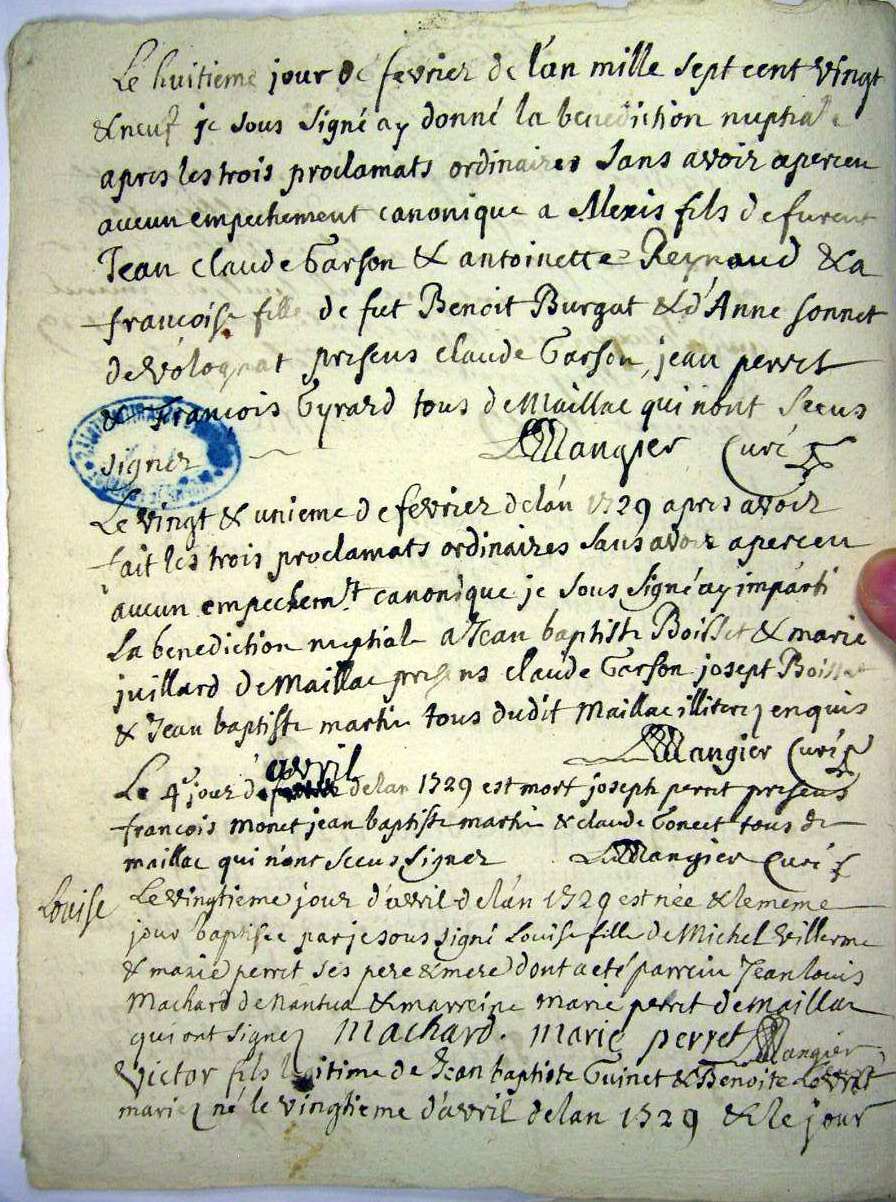 Le huitieme jour de fevrier de lan mille sept cent vingt
& neuf je sous signé ay donné la benediction nuptiale
apres les trois proclamats ordinaires sans avoir aperceu
aucun empechement canonique a Alexis fils de furent
Jean claude Garson & antoinette Reynaud & a
francoise fille de fut Benoit Burgat & d'Anne sonnet
de volognat presens claude Garson, jean perret
& françois Gyrard tous de Maillac qui nont sceus
signer Mangier Curé
Le vingt & unieme de fevrier de lán 1729 apres avoir
fait les trois proclamats ordinaires sans avoir aperceu
aucun empechemt canonique je sous signé ay imparti
La benediction nuptiale a Jean baptiste Boisset & marie
juillard de Maillac presens claude Garson josept Boisset
& Jean baptiste martin tous dudit Maillac illiterez enquis
Mangier Curé
avril
Le 4e jour de delan 1729 est mort joseph perret presens
francois monet jean baptiste martin & claude Gonet tous de
maillac qui n'ont sceus signer Mangier Curé
Louise
Le vingtieme jour d'avril de lán 1729 est née & le meme
jour baptisee par je sous signé Louise fille de Michel villerme
& marie perret ses pere & mere dont a eté parrein Jean louis
Machard de Nantua & marreine marie perret de maillac
qui ont signez Machard. marie perret Mangier
Victor fils legitime de Jean baptiste Guinet & Benoite
mariez né le vingtieme d'avril de lan 1729 & le jour